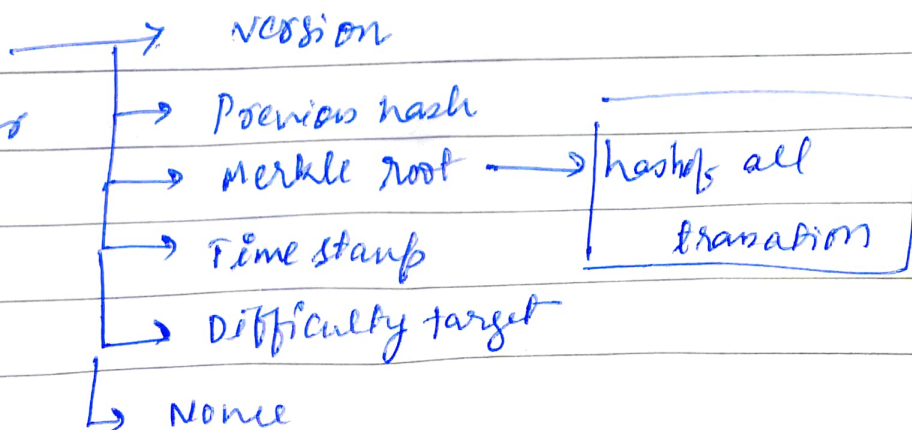 version
Previous hash
Merkle root → hash of all
transation
Time stamp
Difficulty target
Nonce